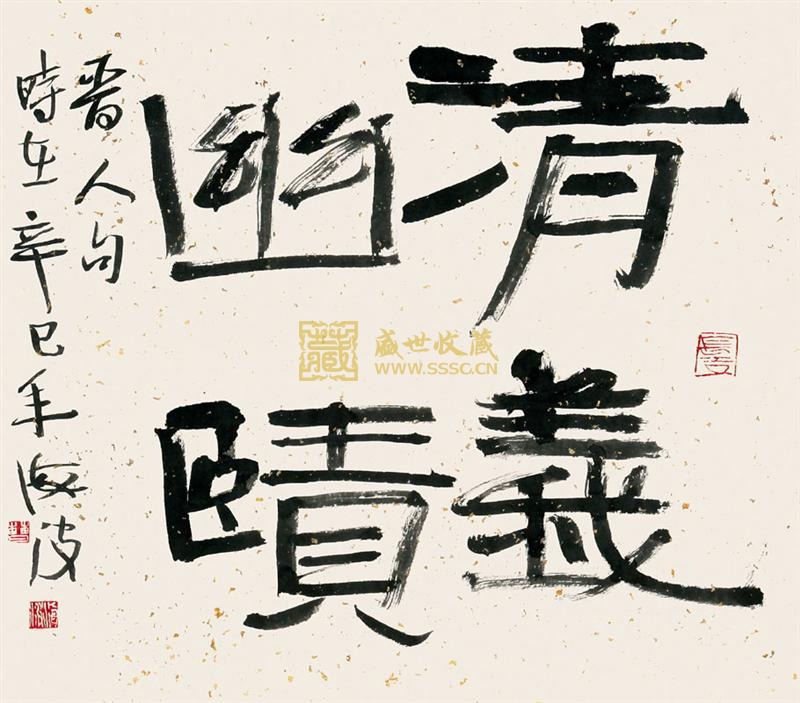 清義
幽賾
晋人句
時在辛巳年海波
藏
盛世收藏
WWW.SSSC.CN